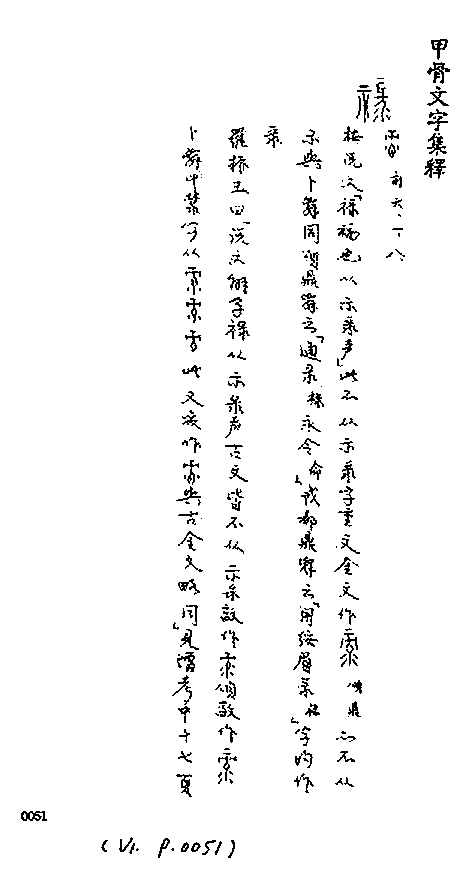 甲骨文字集釋
祿
前 六、一、八
按說文「祿福也从示彔声」此不从示彔字重文金文作 頌鼎 亦不从
示與卜辭同頌鼎辭云「通彔 祿 永令 命」或都鼎辭云「用綏眉彔 祿」字均作
彔
羅振玉曰「說文解字祿从示彔声古文皆不从示彔敦作 頌敦作
卜辭中彔字从 此文或作 與古金文略同」見增考中十七頁
0051
(V1. P.0051)